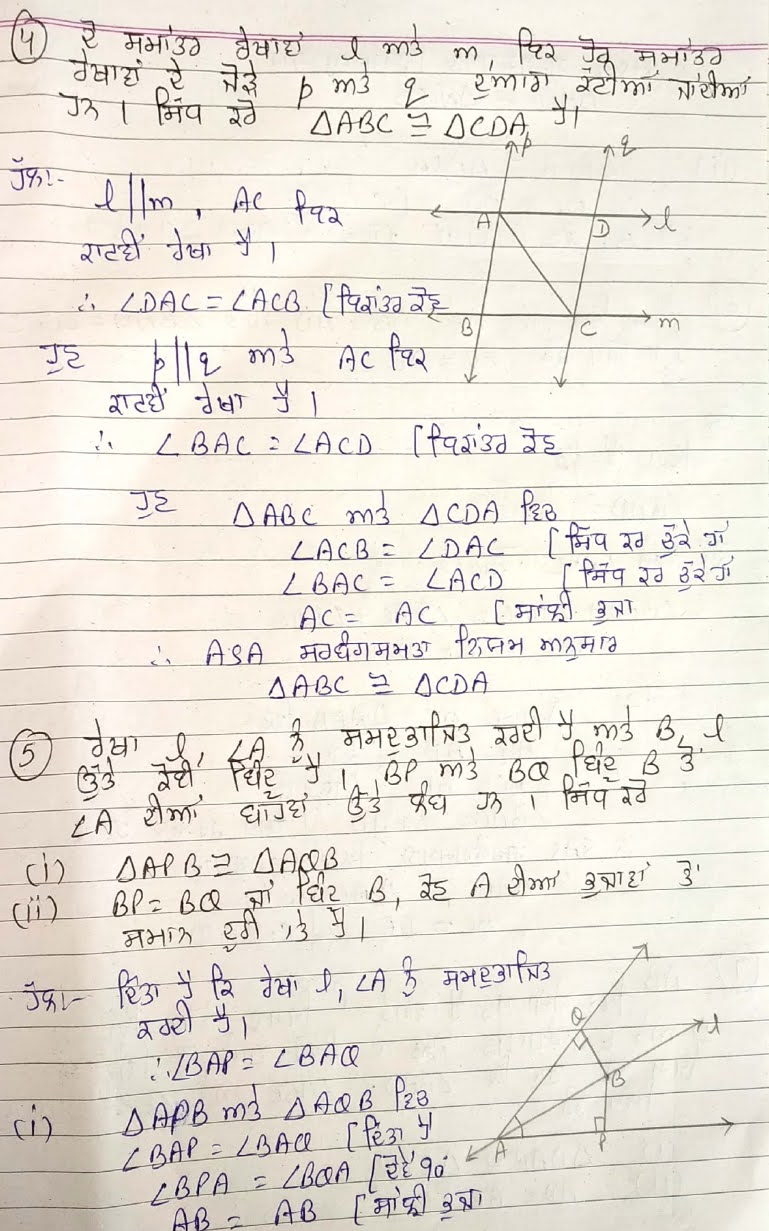 ④ ਦੋ ਸਮਾਂਤਰ ਰੇਖਾਵਾਂ l ਅਤੇ m, ਇੱਕ ਹੋਰ ਸਮਾਂਤਰ
ਰੇਖਾਵਾਂ ਦੇ ਜੋੜੇ p ਅਤੇ q ਦੁਆਰਾ ਕੱਟੀਆਂ ਜਾਂਦੀਆਂ
ਹਨ । ਸਿੱਧ ਕਰੋ ΔABC ≅ ΔCDA ਹੈ।
p
q
ਹੱਲ:-
l||m, AC ਇੱਕ
A
D
l
ਕਾਟਵੀਂ ਰੇਖਾ ਹੈ ।
∴ ∠DAC = ∠ACB [ਇਕਾਂਤਰ ਕੋਣ
B
C
m
ਹੁਣ p||q ਅਤੇ AC ਇੱਕ
ਕਾਟਵੀਂ ਰੇਖਾ ਹੈ ।
∴ ∠BAC = ∠ACD [ਇਕਾਂਤਰ ਕੋਣ
ਹੁਣ ΔABC ਅਤੇ ΔCDA ਵਿੱਚ
∠ACB = ∠DAC [ਸਿੱਧ ਕਰ ਚੁੱਕੇ ਹਾਂ
∠BAC = ∠ACD [ਸਿੱਧ ਕਰ ਚੁੱਕੇ ਹਾਂ
AC = AC [ਸਾਂਝੀ ਭੁਜਾ
∴ ASA ਸਰਬੰਗਸਮਤਾ ਨਿਯਮ ਅਨੁਸਾਰ
ΔABC ≅ ΔCDA
⑤ ਰੇਖਾ l, ∠A ਨੂੰ ਸਮਦੁਭਾਜਿਤ ਕਰਦੀ ਹੈ ਅਤੇ B, l
ਉੱਤੇ ਕੋਈ ਬਿੰਦੂ ਹੈ । BP ਅਤੇ BQ ਬਿੰਦੂ B ਤੋਂ
∠A ਦੀਆਂ ਬਾਹਾਂ ਉੱਤੇ ਲੰਬ ਹਨ । ਸਿੱਧ ਕਰੋ
(i) ΔAPB ≅ ΔAQB
(ii) BP = BQ ਜਾਂ ਬਿੰਦੂ B, ਕੋਣ A ਦੀਆਂ ਭੁਜਾਵਾਂ ਤੋਂ
ਸਮਾਨ ਦੂਰੀ 'ਤੇ ਹੈ ।
ਹੱਲ:- ਦਿੱਤਾ ਹੈ ਕਿ ਰੇਖਾ l, ∠A ਨੂੰ ਸਮਦੁਭਾਜਿਤ
ਕਰਦੀ ਹੈ ।
∴ ∠BAP = ∠BAQ
Q
l
B
A
P
(i) ΔAPB ਅਤੇ ΔAQB ਵਿੱਚ
∠BAP = ∠BAQ [ਦਿੱਤਾ ਹੈ
∠BPA = ∠BQA [ਦੋਵੇਂ 90°
AB = AB [ਸਾਂਝੀ ਭੁਜਾ